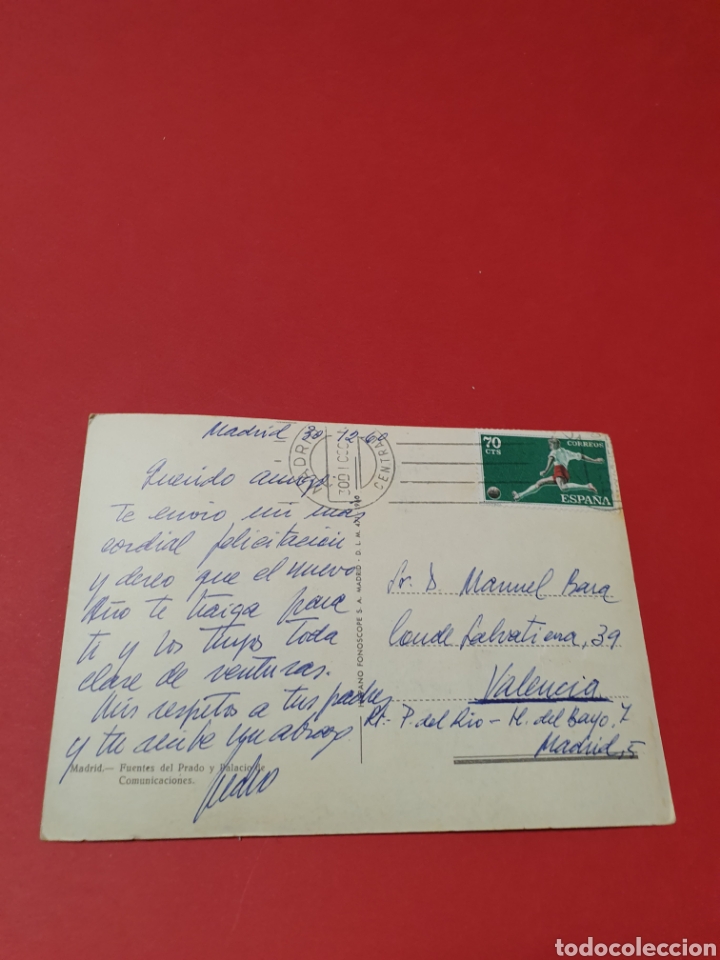 Madrid 30-12-60
Querido amigo:
Te envio mi mas
cordial felicitación
y deseo que el nuevo
Año te traiga para
ti y los tuyos toda
clase de venturas.
Mis respetos a tus padres
y tu recibe un abrazo
Pedro
Madrid.— Fuentes del Prado y Palacio de
Comunicaciones.
FONOSCOPE S. A. MADRID - D. L. M.
MADRID
CENTRAL
70
CTS
CORREOS
ESPAÑA
Sr. D. Manuel Bara
Conde Salvatierra, 39
Valencia
Rt.- P. del Rio - M. del Bayo, 7
Madrid, 5
todocoleccion